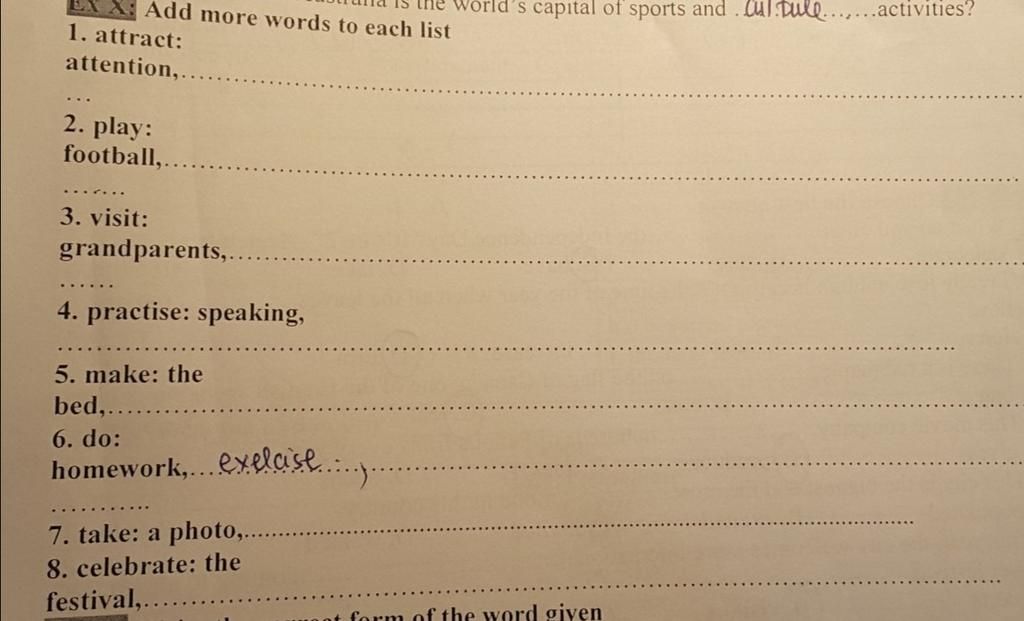 is the world's capital of sports and . cultule...,...activities?
EX X: Add more words to each list
1. attract:
attention,..............................
...
2. play:
football,..............................
.......
3. visit:
grandparents,..............................
......
4. practise: speaking,
..............................
5. make: the
bed,..............................
6. do:
homework,...exelcise...,..............................
...........
7. take: a photo,..............................
8. celebrate: the
festival,..............................
form of the word given